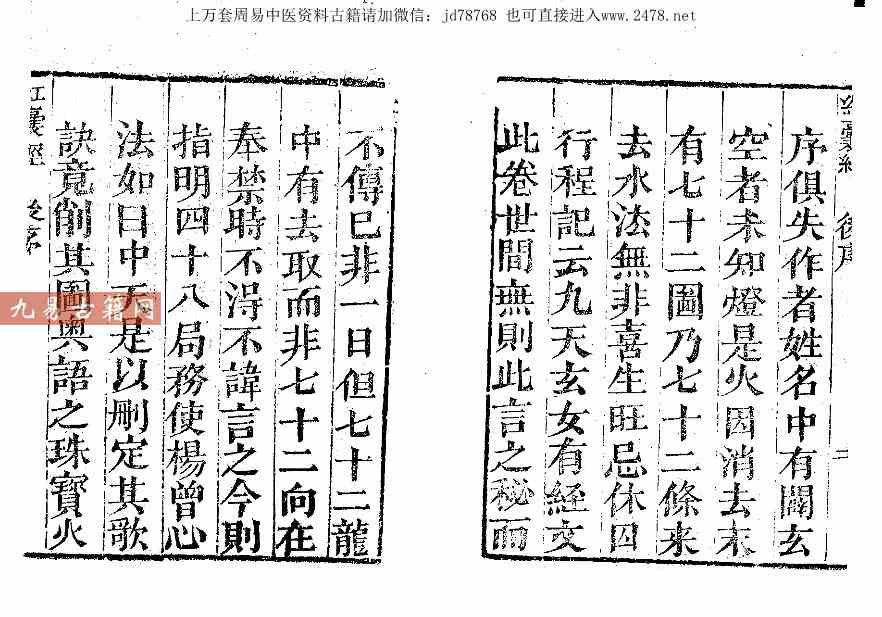 上万套周易中医资料古籍请加微信：jd78768 也可直接进入www.2478.net
後序
序俱失作者姓名中有闢玄
空者未知燈是火因消去末
有七十二圖乃七十二條来
去水法無非喜生旺忌休囚
行程記云九天玄女有経文
此卷世間無則此言之秘而
不傳已非一日但七十二龍
中有去取而非七十二向在
奉禁時不淂不諱言之今則
指明四十八局務使楊曾心
法如日中天是以刪定其歌
訣竟削其圖奥語之珠寶火
囊經 後序
九易古籍网